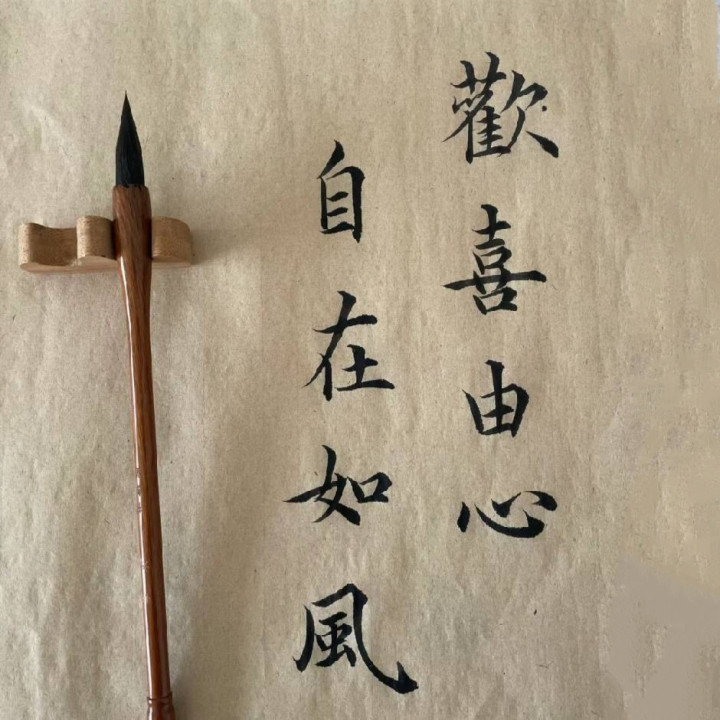 歡喜由心
自在如風